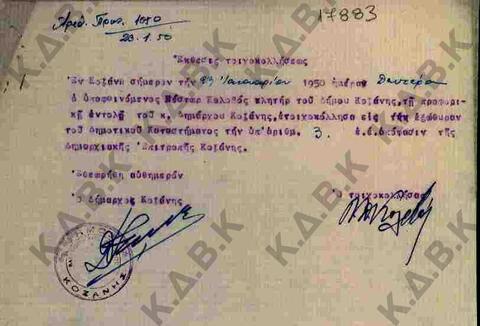 Αριθ. Πρωτ. 1050
23.1.50
17883
Έκθεσις τοιχοκολλήσεως
Εν Κοζάνη σήμερον την 23 Ιανουαρίου 1950 ημέραν Δευτέρα
ο υποφαινόμενος Νέστωρ Καλαβός κλητήρ του Δήμου Κοζάνης, τη προφορι-
κή εντολή του κ. Δημάρχου Κοζάνης, ετοιχοκόλλησα εις την εξώθυραν
του Δημοτικού Καταστήματος την υπ' αριθμ. 3 ε.έ. απόφασιν της
Δημαρχιακής Επιτροπής Κοζάνης.
Εθεωρήθη αυθημερόν
Ο Δήμαρχος Κοζάνης
Ο τοιχοκολλήσας
ΚΟΖΑΝΗΣ
Κ.Δ.Β.Κ